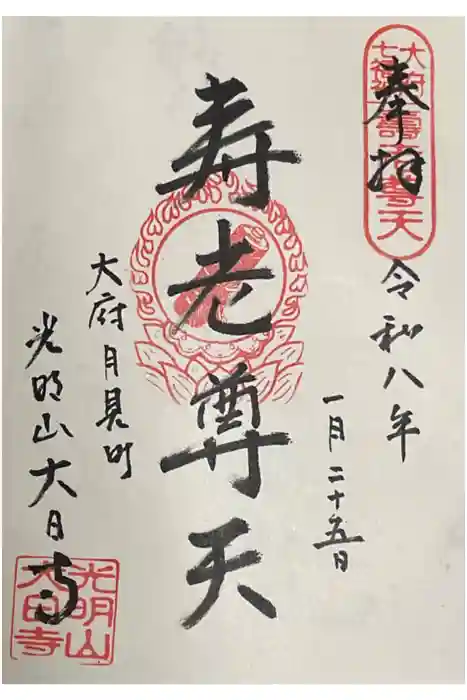 奉拝
大府七福神
寿老尊天
令和八年
一月二十五日
寿老尊天
大府月見町
光明山大日寺
光明山
大日寺